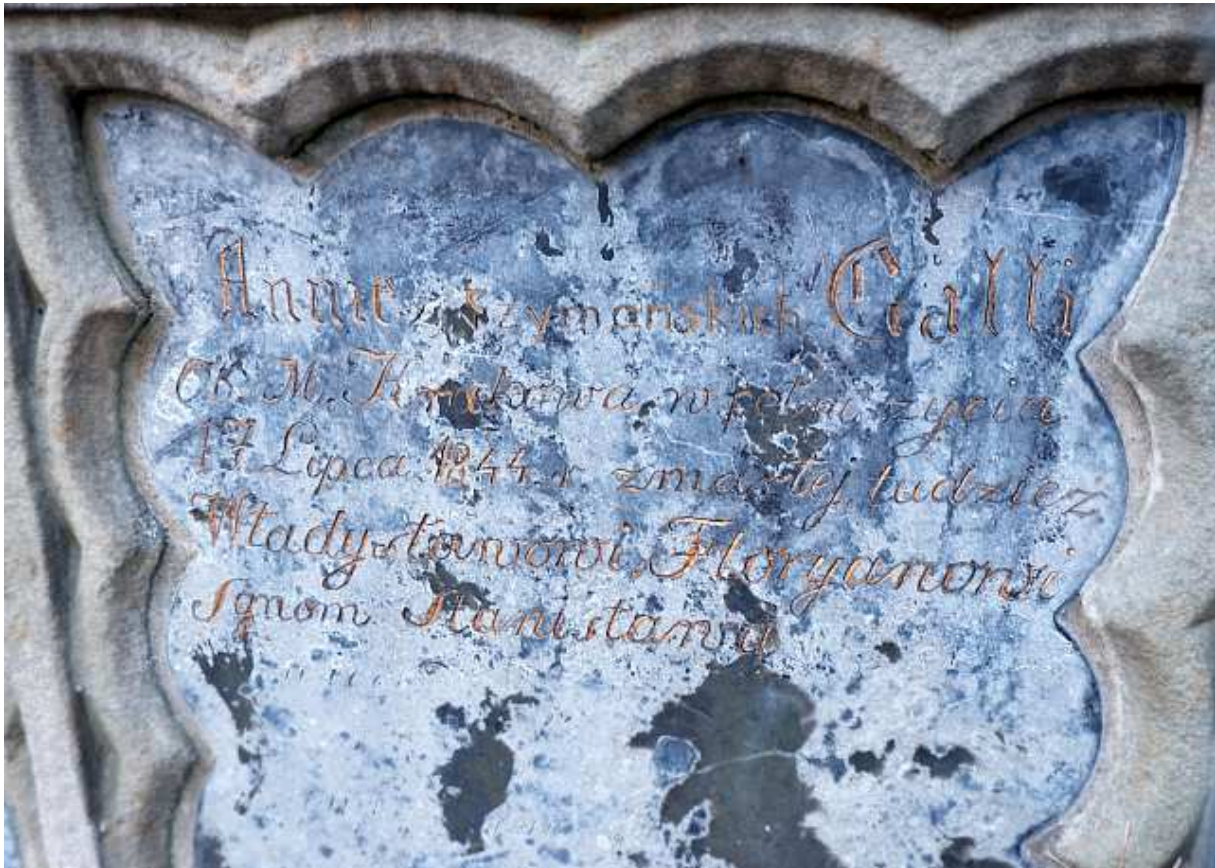 Annie z Szymańskich Galli
Ob. M. Krakowa, w pełni życia
17 Lipca 1844 r. zmarłej, tudzież
Władysławowi, Floryanowi
Synom Stanisława